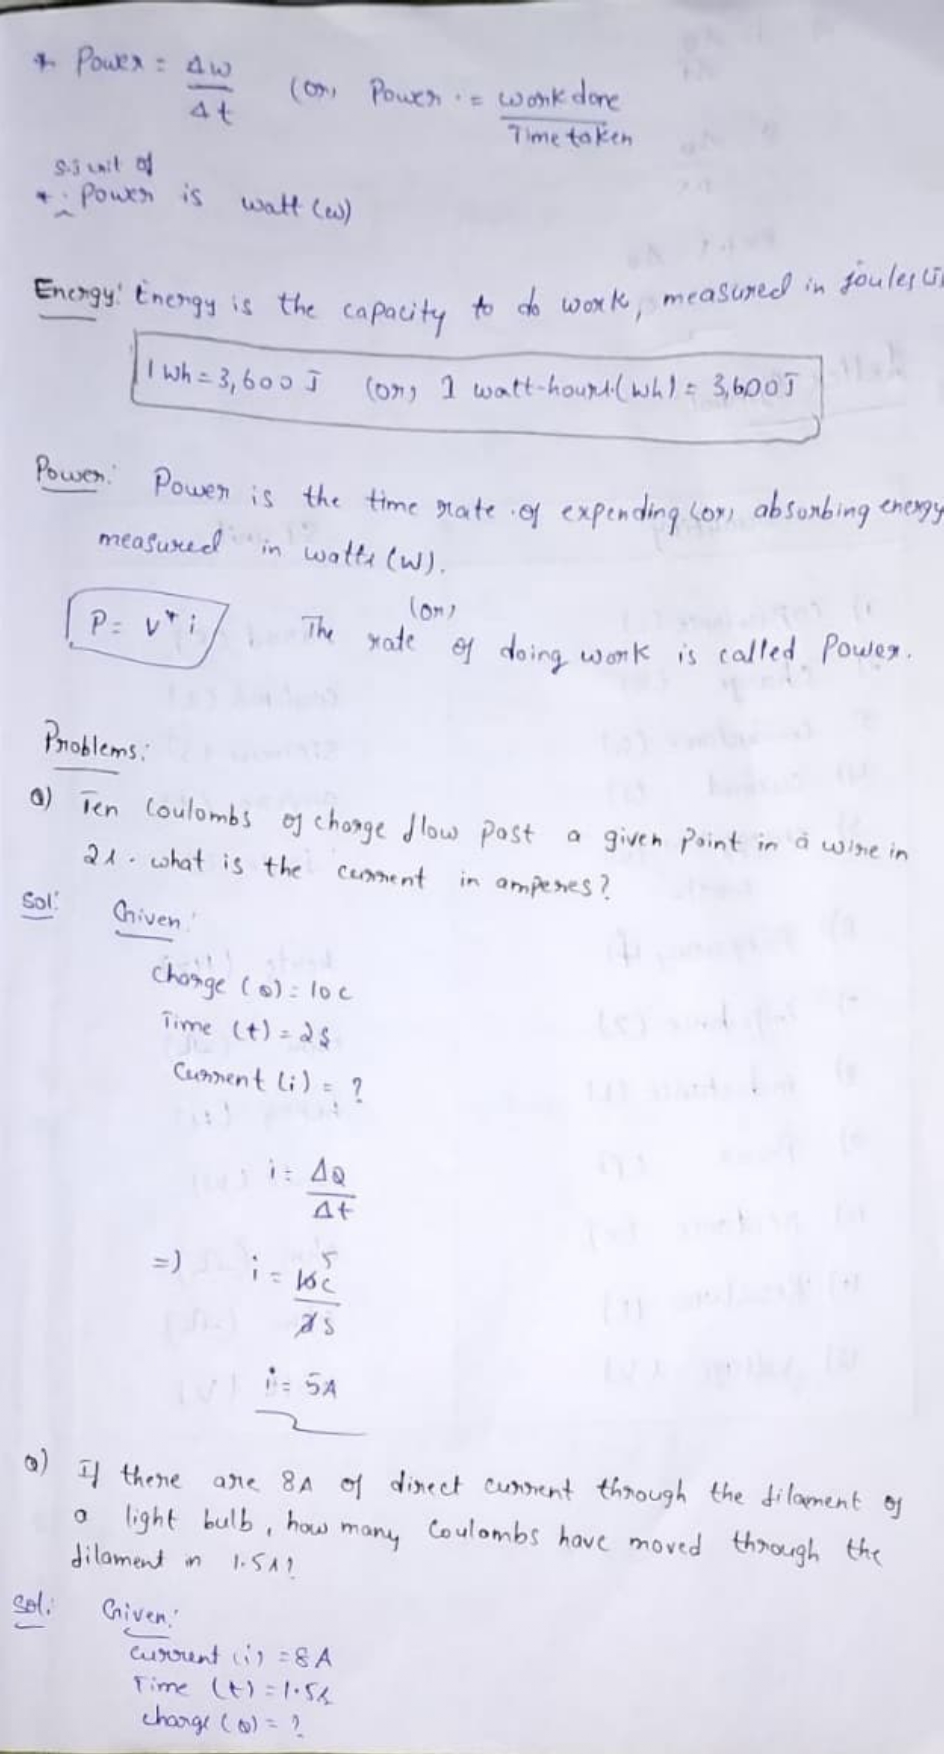 * Power = Δw/Δt (or) Power = work done/Time taken
S.I unit of
* Power is watt (w)
Energy: Energy is the capacity to do work, measured in joules (J
1 Wh = 3,600 J (or) 1 watt-hour (Wh) = 3,600 J
Power: Power is the time rate of expending (or) absorbing energy
measured in watts (W).
(or)
P = v * i The rate of doing work is called Power.
Problems:
Q) Ten Coulombs of charge flow past a given Point in a wire in
2s. what is the current in amperes?
Sol: Given:
Charge (Q) = 10 C
Time (t) = 2s
Current (i) = ?
i = ΔQ/Δt
=) i = 10C/2s 5
i = 5A
Q) If there are 8A of direct current through the filament of
a light bulb, how many Coulombs have moved through the
filament in 1.5s?
Sol: Given:
Current (i) = 8 A
Time (t) = 1.5s
Charge (Q) = ?